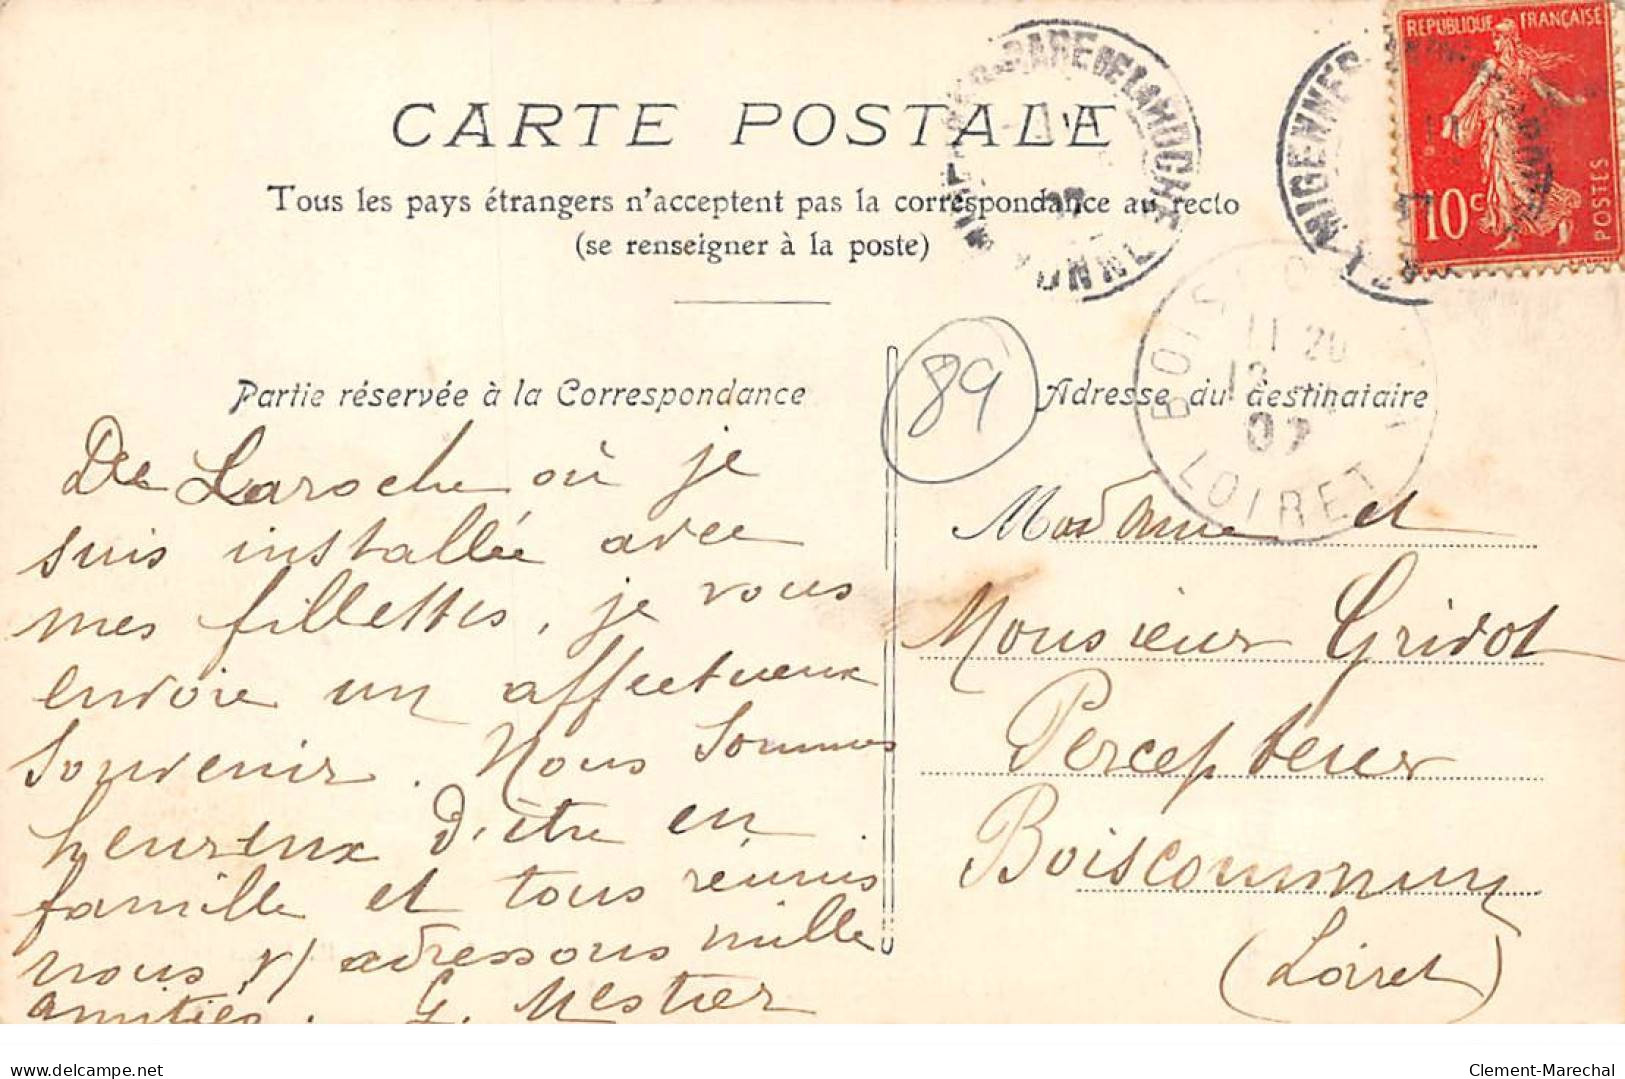 CARTE POSTALE
Tous les pays étrangers n'acceptent pas la correspondance au recto
(se renseigner à la poste)
REPUBLIQUE FRANÇAISE
10c
POSTES
MIGENNES
11 20
12
07
LOIRET
89
Partie réservée à la Correspondance
De Laroche où je
suis installée avec
mes fillettes, je vous
envoie un affectueux
souvenir. Nous sommes
heureux d'être en
famille et tous réunis
nous v/ adressons mille
amitiés. G. Mestier
Adresse du destinataire
Madame et
Monsieur Gridot
Percepteur
Boiscommun
(Loiret)
delcampe.net
Clement-Marechal